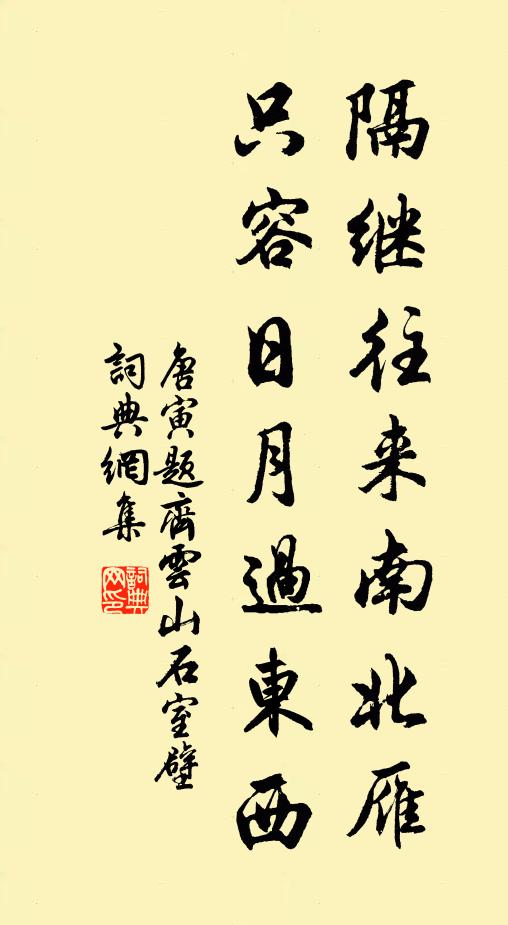 隔继往来南北雁
只容日月過東西
唐寅题齊雲山石室壁
詞典網集
詞典網印